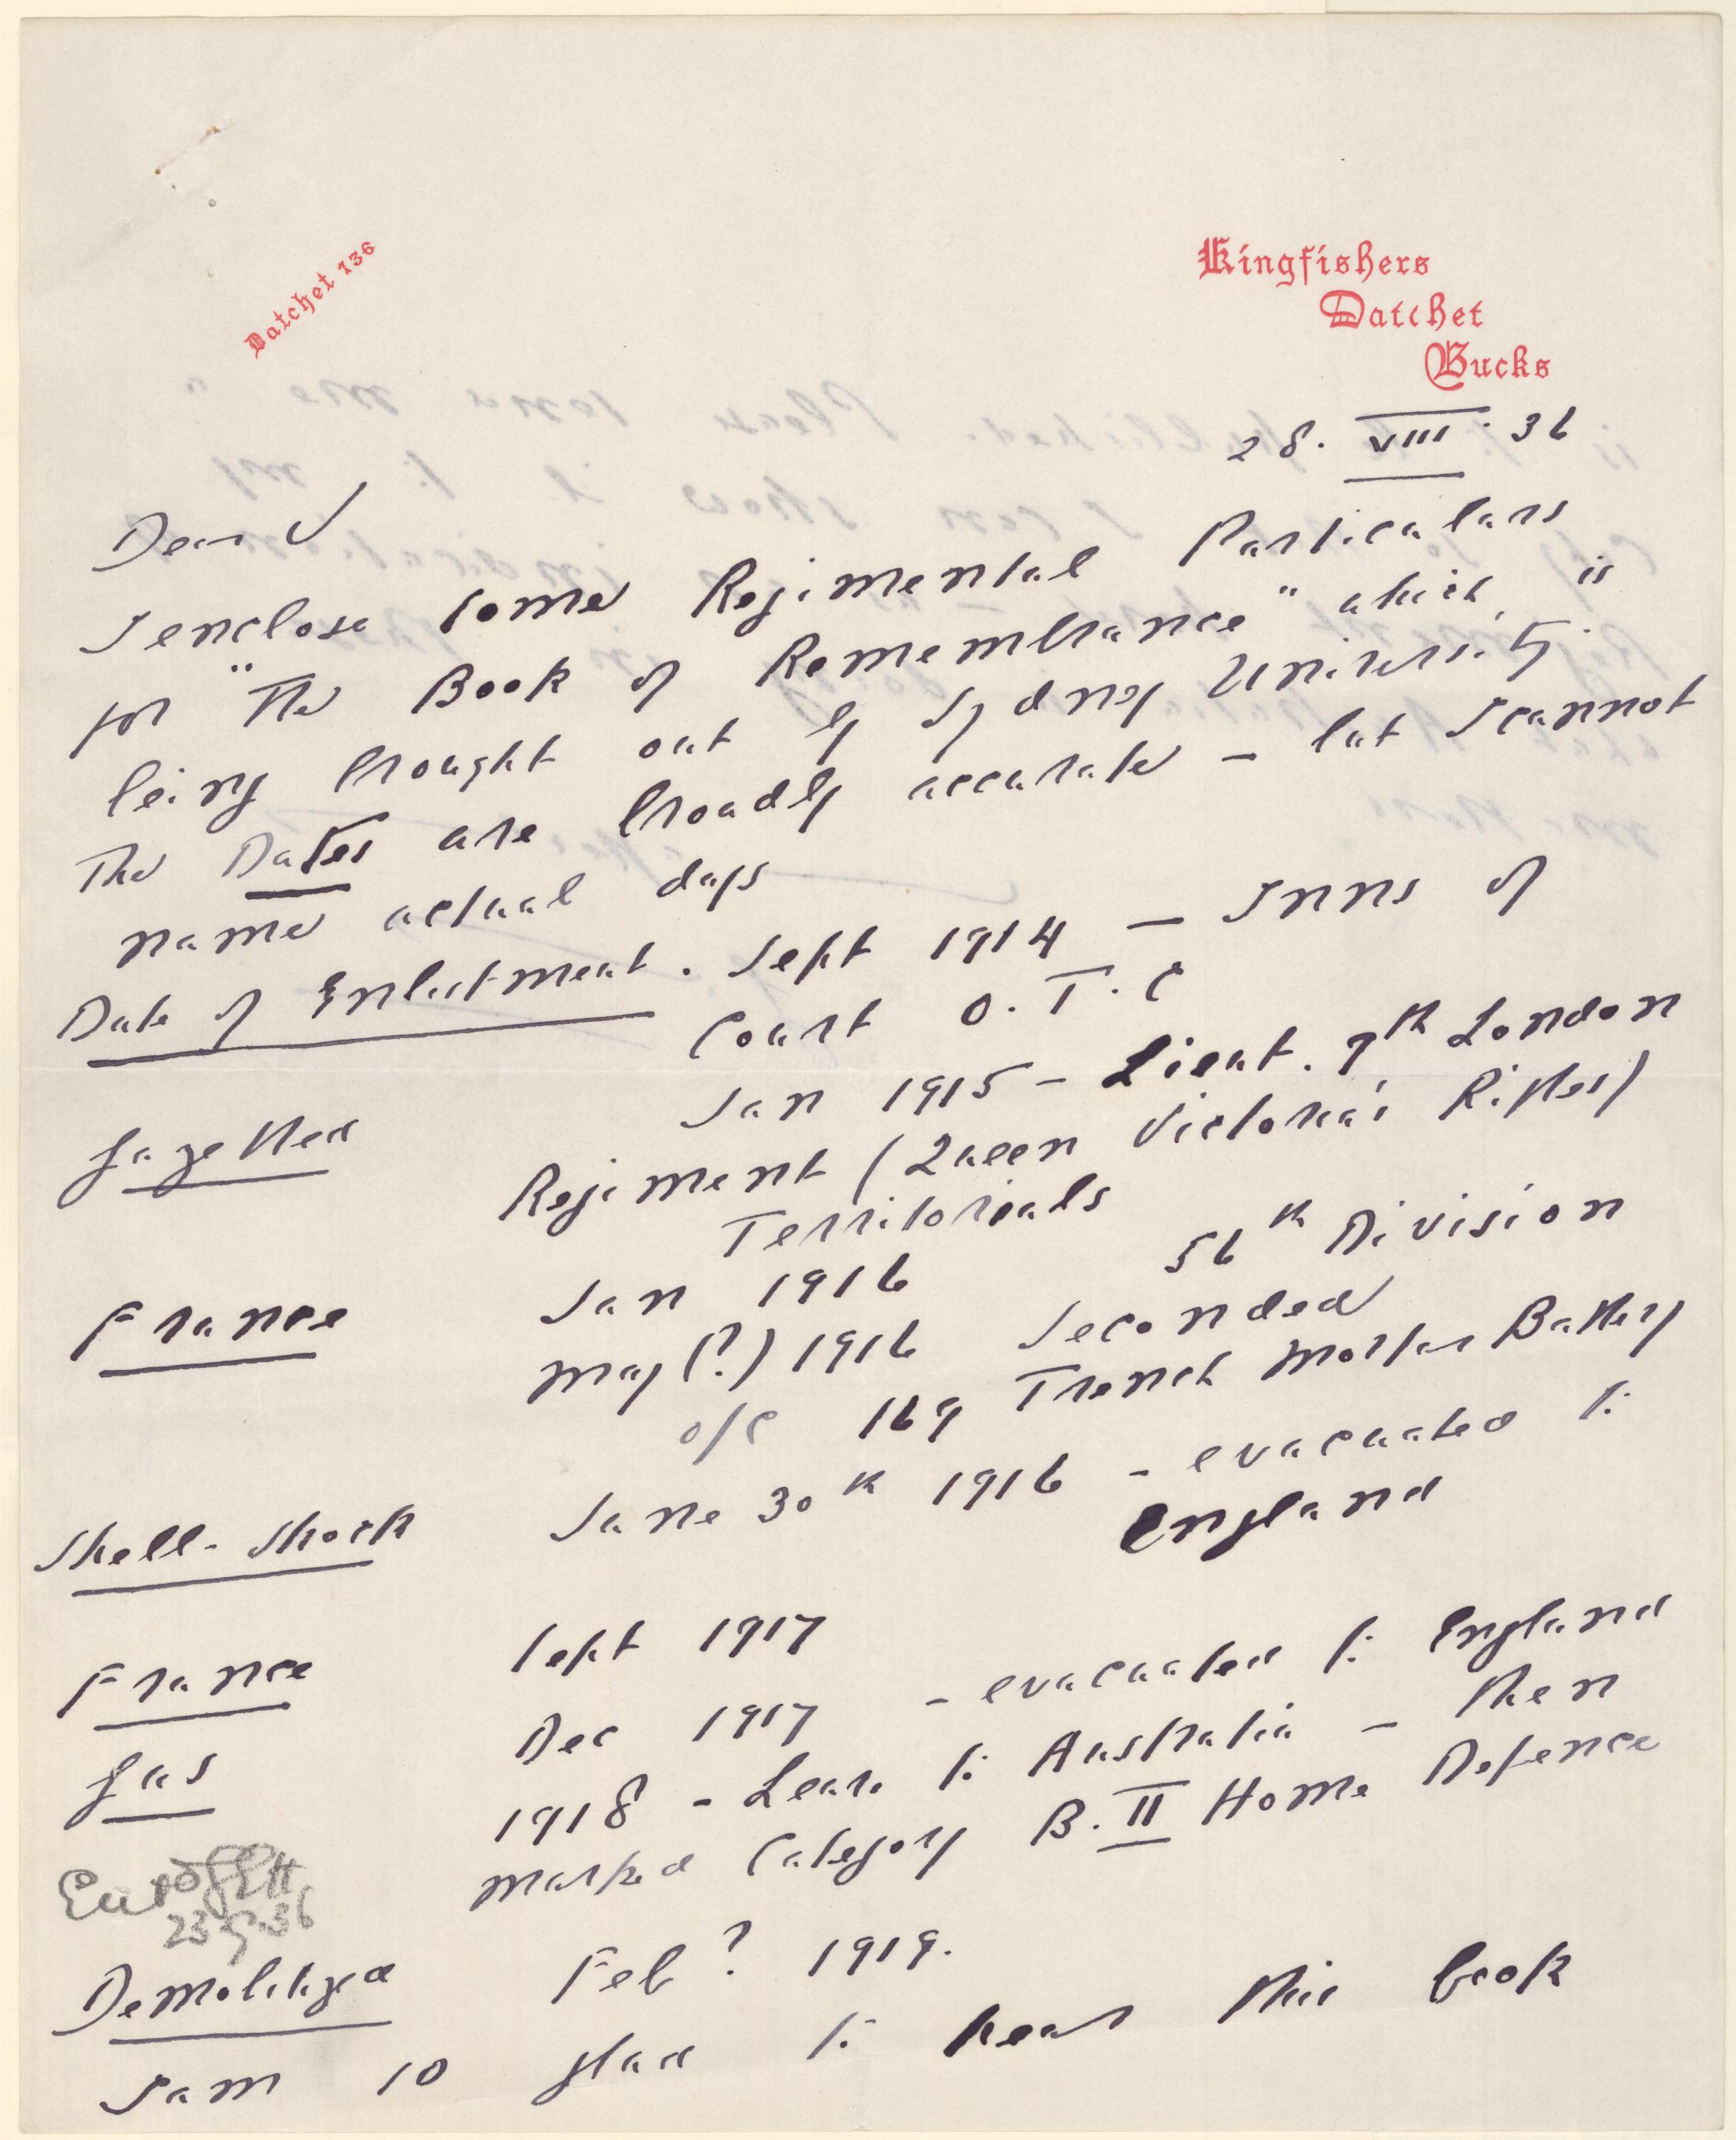 Datchet 136
Kingfishers
Datchet
Bucks
28. VIII. 36
Dear
I enclose some Regimental Particulars
for "The Book of Remembrance" which is
being brought out by Sydney University.
The Dates are broadly accurate – but I cannot
name actual days
Date of Enlistment. Sept 1914 — Inns of
Court O.T.C
Gazetted Jan 1915 – Lieut. 9th London
Regiment (Queen Victoria's Rifles)
Territorials
France Jan 1916 56th Division
May (?) 1916 Seconded
o/c 169 Trench Mortar Battery
Shell-Shock June 30th 1916 – evacuated to
England
France Sept 1917
Gas Dec 1917 – evacuated to England
1918 – Leave to Australia – then
marked Category B.II Home Defence
23.9.36
Demobilized Feb ? 1919.
I am so glad to hear this book